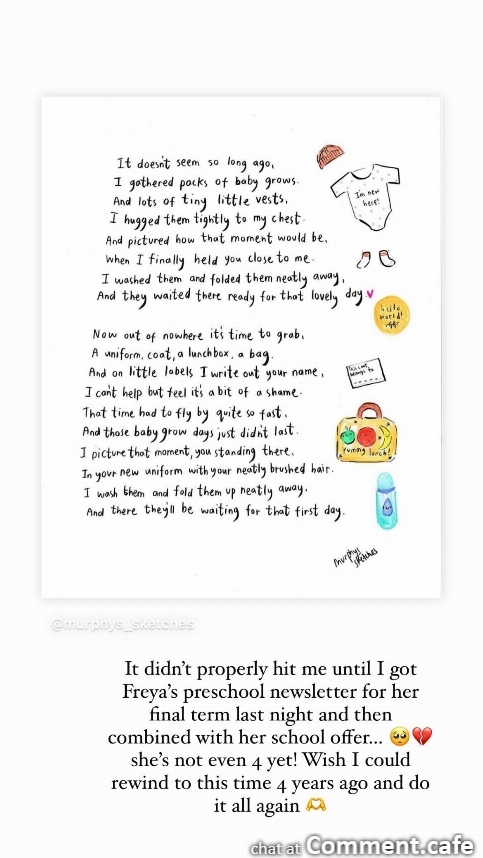 It doesn't seem so long ago,
I gathered packs of baby grows.
And lots of tiny little vests,
I hugged them tightly to my chest.
And pictured how that moment would be,
When I finally held you close to me.
I washed them and folded them neatly away,
And they waited there ready for that lovely day.
I'm new
here!
hello
world!
Now out of nowhere it's time to grab,
A uniform, coat, a lunchbox, a bag.
And on little labels I write out your name,
I can't help but feel it's a bit of a shame.
That time had to fly by quite so fast,
And those baby grow days just didn't last.
I picture that moment, you standing there,
In your new uniform with your neatly brushed hair.
I wash them and fold them up neatly away,
And there they'll be waiting for that first day.
This coat
belongs to
yummy lunch!
murphys
sketches
@murphys_sketches
It didn't properly hit me until I got
Freya's preschool newsletter for her
final term last night and then
combined with her school offer... 🥺💔
she's not even 4 yet! Wish I could
rewind to this time 4 years ago and do
it all again 🫶
chat at Comment.cafe